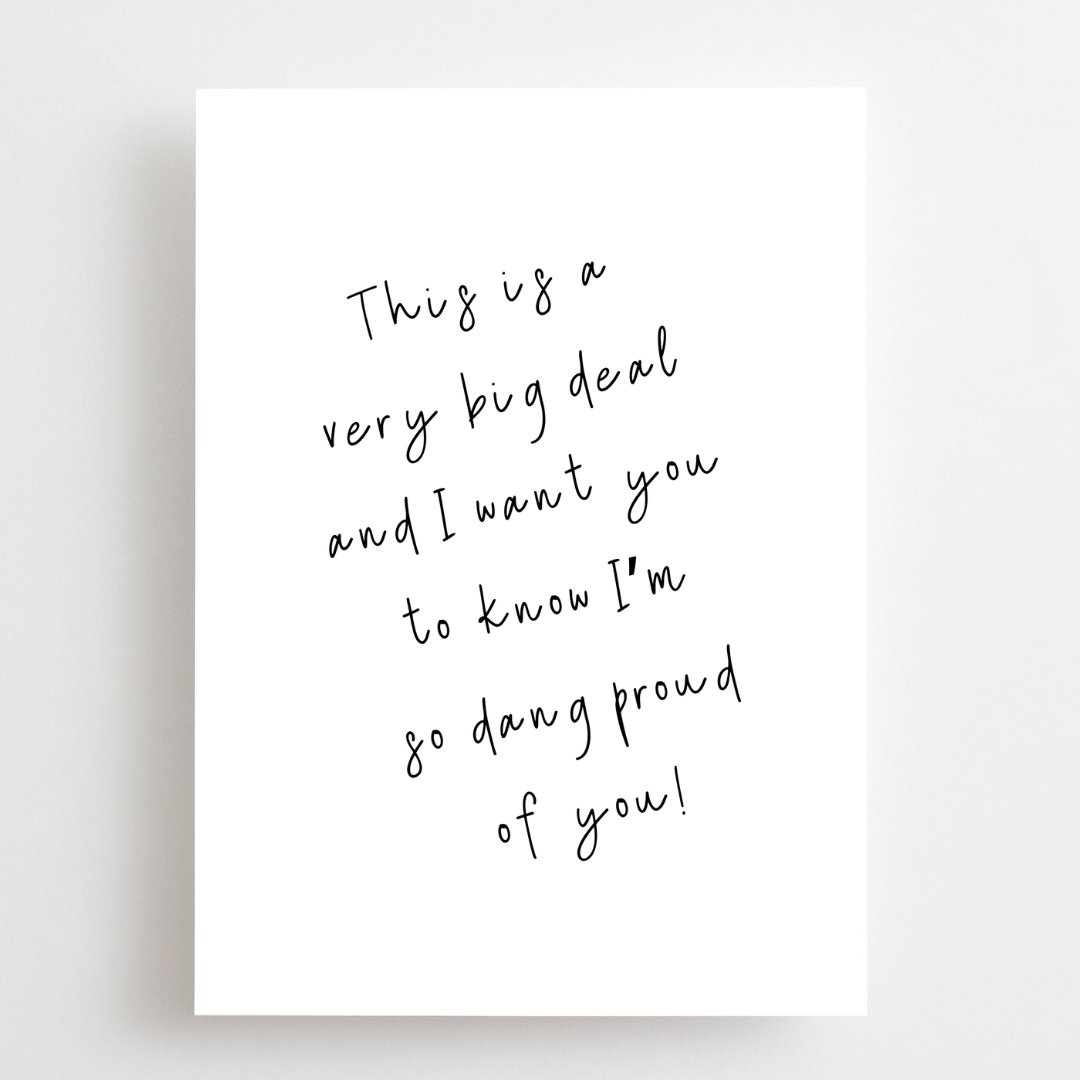 This is a
very big deal
and I want you
to know I'm
so dang proud
of you!